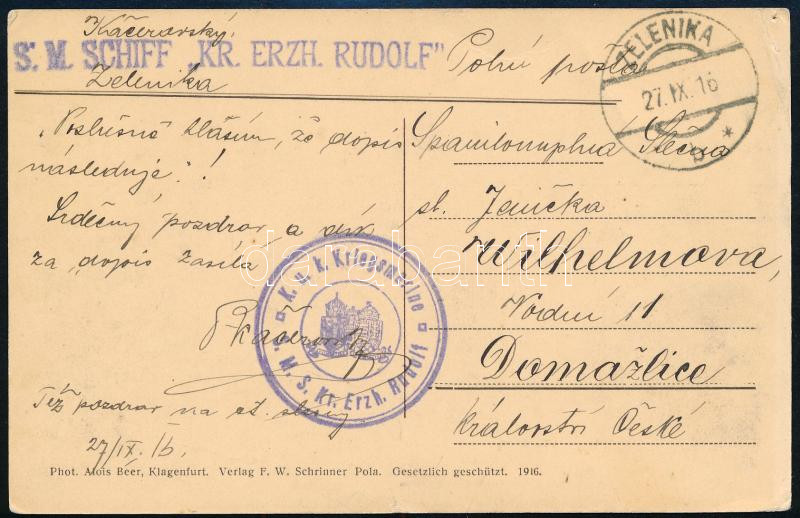 Kačerovský,
S. M. SCHIFF „KR. ERZH. RUDOLF"
Zelenika
Polní pošta
ZELENIKA
27. IX. 16
b *
„Poslušně hlásím, že dopis
následuje"!
Srdečný pozdrav a dík
za dopis zasílá
Kačerovský
Též pozdrav na ct.
27/IX. 16.
Slečna
sl. Jenička
Wilhelmova,
Vodní 11
Domažlice
Království České
K. u. k. Kriegsmarine
S. M. S. Kr. Erzh. Rudolf
darabanth
Phot. Alois Beer, Klagenfurt. Verlag F. W. Schrinner Pola. Gesetzlich geschützt. 1916.